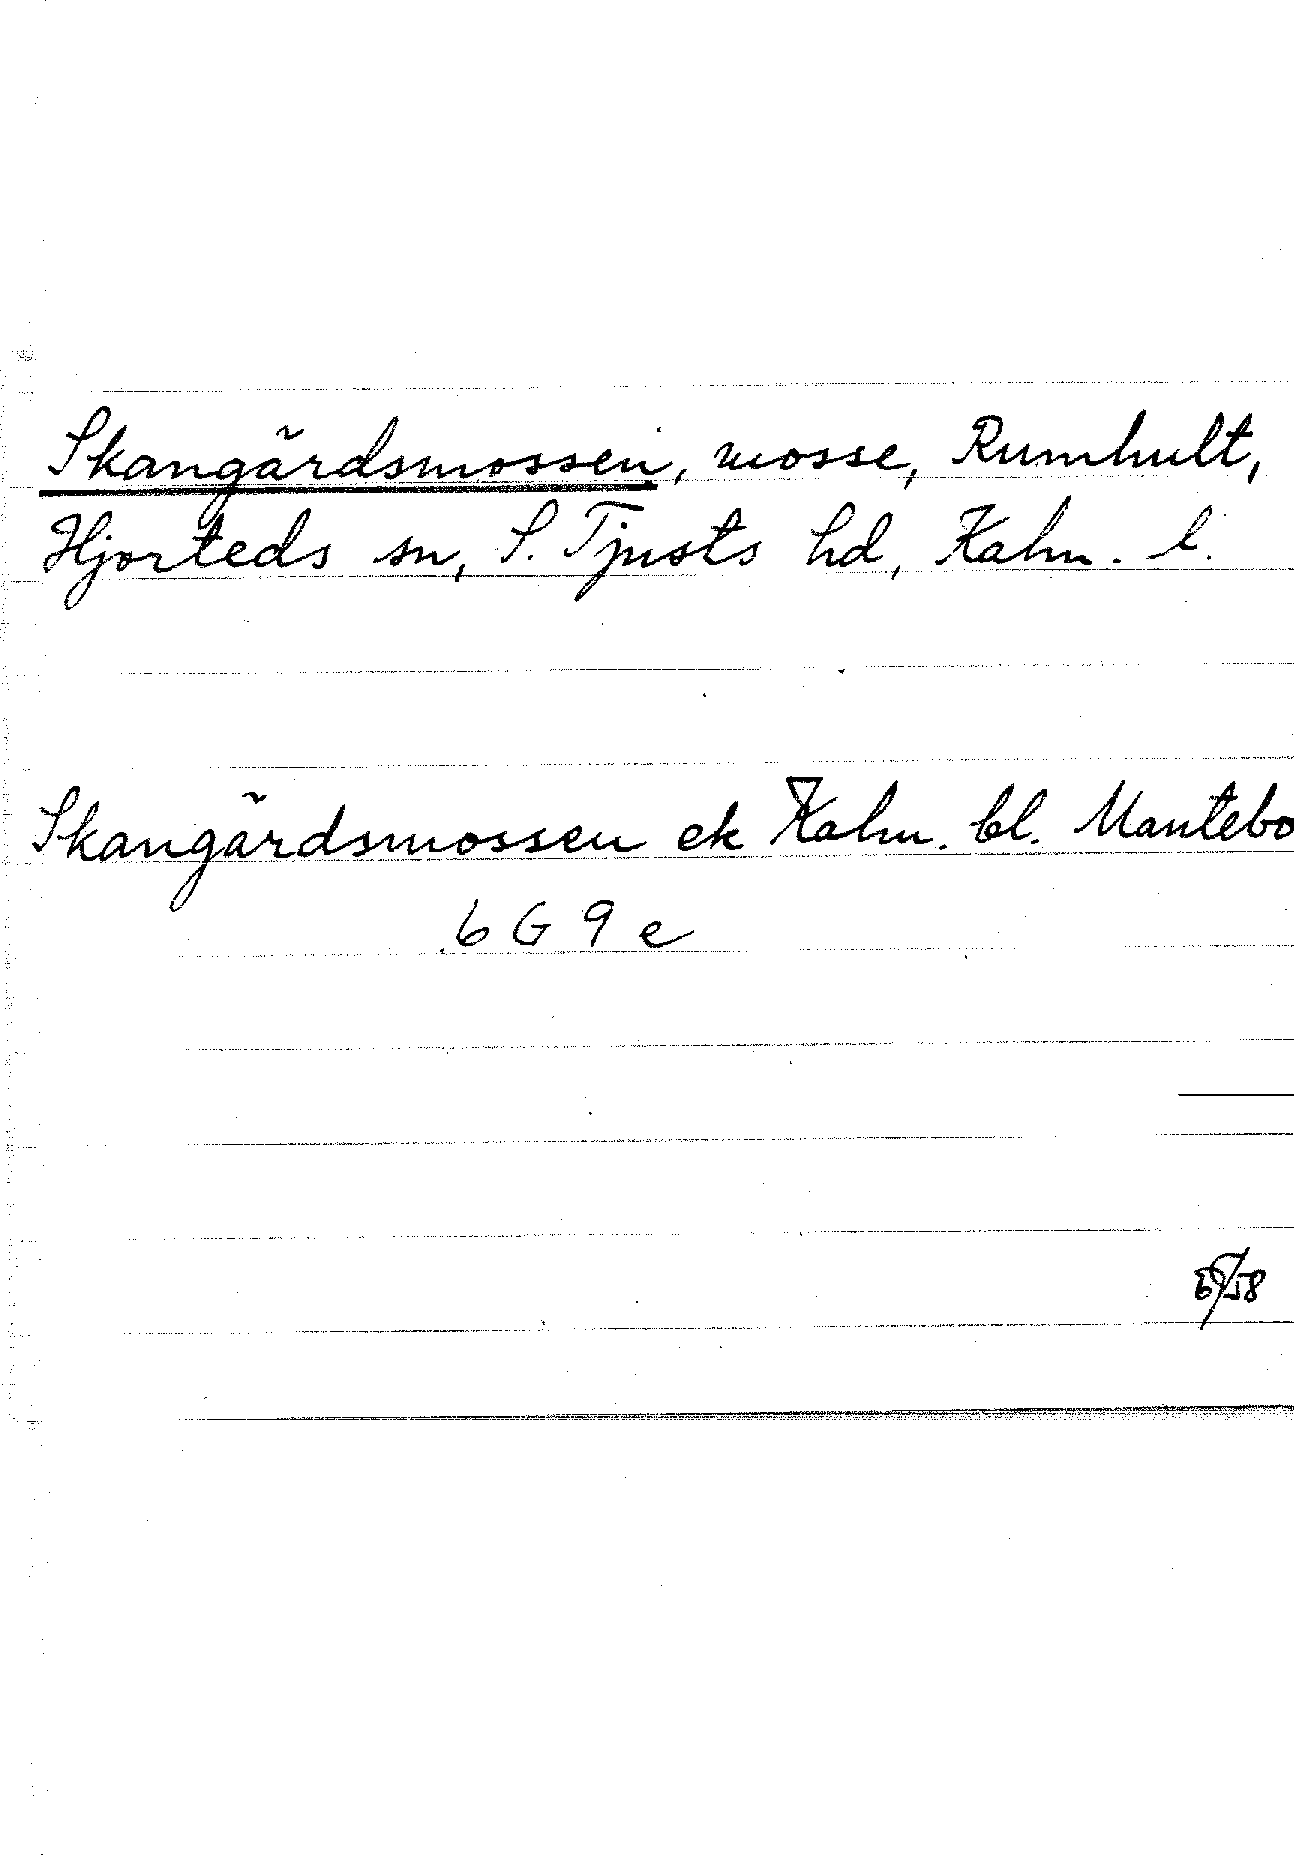 Skangärdsmossen, mosse, Rumhult,
Hjorteds sn, S. Tjusts hd, Kalm. l.
Skangärdsmossen ek Kalm. bl. Mantebo
6 G 9 e